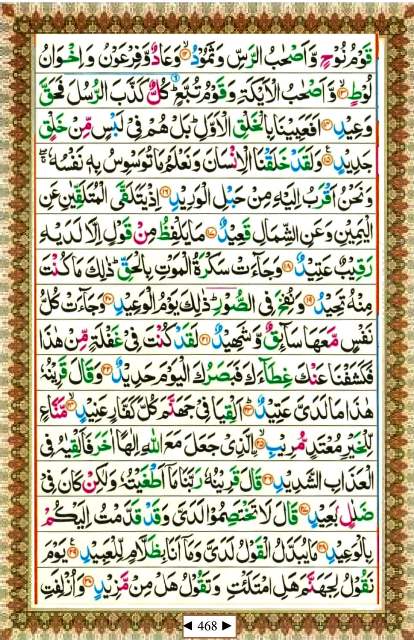 قَوْمُ نُوْحٍ وَّاَصْحٰبُ الرَّسِّ وَثَمُوْدُ ۙ﴿۱۲﴾ وَعَادٌ وَّفِرْعَوْنُ وَاِخْوَانُ
لُوْطٍ ۙ﴿۱۳﴾ وَّاَصْحٰبُ الْاَيْكَةِ وَقَوْمُ تُبَّعٍ ؕ كُلٌّ كَذَّبَ الرُّسُلَ فَحَقَّ
وَعِيْدِ ﴿۱۴﴾ اَفَعَيِيْنَا بِالْخَلْقِ الْاَوَّلِ ؕ بَلْ هُمْ فِىْ لَبْسٍ مِّنْ خَلْقٍ
جَدِيْدٍ ﴿۱۵﴾ وَلَقَدْ خَلَقْنَا الْاِنْسَانَ وَنَعْلَمُ مَا تُوَسْوِسُ بِهٖ نَفْسُهٗ ۖۚ
وَنَحْنُ اَقْرَبُ اِلَيْهِ مِنْ حَبْلِ الْوَرِيْدِ ﴿۱۶﴾ اِذْ يَتَلَقَّى الْمُتَلَقِّيٰنِ عَنِ
الْيَمِيْنِ وَعَنِ الشِّمَالِ قَعِيْدٌ ﴿۱۷﴾ مَا يَلْفِظُ مِنْ قَوْلٍ اِلَّا لَدَيْهِ
رَقِيْبٌ عَتِيْدٌ ﴿۱۸﴾ وَجَآءَتْ سَكْرَةُ الْمَوْتِ بِالْحَقِّ ؕ ذٰلِكَ مَا كُنْتَ
مِنْهُ تَحِيْدُ ﴿۱۹﴾ وَنُفِخَ فِى الصُّوْرِ ؕ ذٰلِكَ يَوْمُ الْوَعِيْدِ ﴿۲۰﴾ وَجَآءَتْ كُلُّ
نَفْسٍ مَّعَهَا سَآئِقٌ وَّشَهِيْدٌ ﴿۲۱﴾ لَقَدْ كُنْتَ فِىْ غَفْلَةٍ مِّنْ هٰذَا
فَكَشَفْنَا عَنْكَ غِطَآءَكَ فَبَصَرُكَ الْيَوْمَ حَدِيْدٌ ﴿۲۲﴾ وَقَالَ قَرِيْنُهٗ
هٰذَا مَا لَدَىَّ عَتِيْدٌ ؕ﴿۲۳﴾ اَلْقِيَا فِىْ جَهَنَّمَ كُلَّ كَفَّارٍ عَنِيْدٍ ۙ﴿۲۴﴾ مَّنَّاعٍ
لِّلْخَيْرِ مُعْتَدٍ مُّرِيْبِ ۙ﴿۲۵﴾ ۨالَّذِىْ جَعَلَ مَعَ اللّٰهِ اِلٰهًا اٰخَرَ فَاَلْقِيٰهُ فِى
الْعَذَابِ الشَّدِيْدِ ﴿۲۶﴾ قَالَ قَرِيْنُهٗ رَبَّنَا مَاۤ اَطْغَيْتُهٗ وَلٰكِنْ كَانَ فِىْ
ضَلٰلٍۢ بَعِيْدٍ ﴿۲۷﴾ قَالَ لَا تَخْتَصِمُوْا لَدَىَّ وَقَدْ قَدَّمْتُ اِلَيْكُمْ
بِالْوَعِيْدِ ﴿۲۸﴾ مَا يُبَدَّلُ الْقَوْلُ لَدَىَّ وَمَاۤ اَنَا بِظَلَّامٍ لِّلْعَبِيْدِ ﴿۲۹﴾ يَوْمَ
نَقُوْلُ لِجَهَنَّمَ هَلِ امْتَلَئْتِ وَتَقُوْلُ هَلْ مِنْ مَّزِيْدٍ ﴿۳۰﴾ وَاُزْلِفَتِ
468